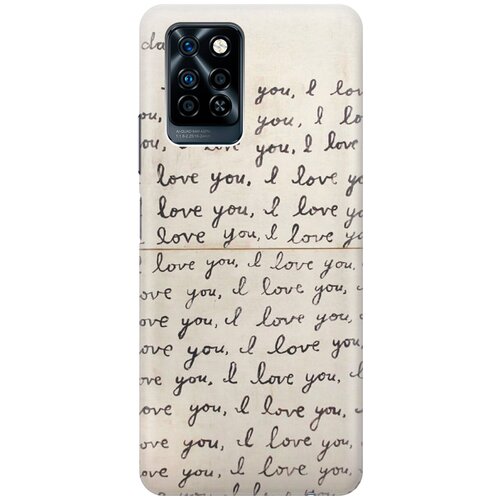 da
you, I lov
ou, I love you, I lo
ou, I love you, I love
love you, I love yo
I love you, I love yo
I love you, I love yo
I love you, I love you,
ove you, I love you,
ove you, I love you,
ove you, I love you,
ove you, I love you,
ove you, I love you,
ove you, I love you,
ove you, I love you,